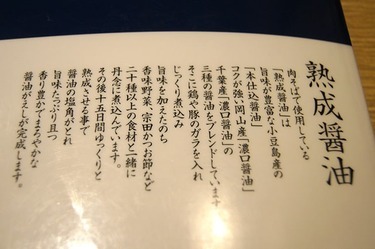 熟成醤油
肉そばで使用している
「熟成醤油」は
旨味が豊富な小豆島産の
「本仕込醤油」
コクが強い岡山産「濃口醤油」
千葉産「濃口醤油」の
三種の醤油をブレンドしています
そこに鶏や豚のガラを入れ
じっくり煮込み
旨味を加えたのち
香味野菜、宗田かつお節など
二十種以上の食材と一緒に
丹念に煮込んでいます。
その後十五日間ゆっくりと
熟成させる事で
醤油の塩角がとれ
旨味たっぷり且つ
香り豊かでまろやかな
醤油がえしが完成します。